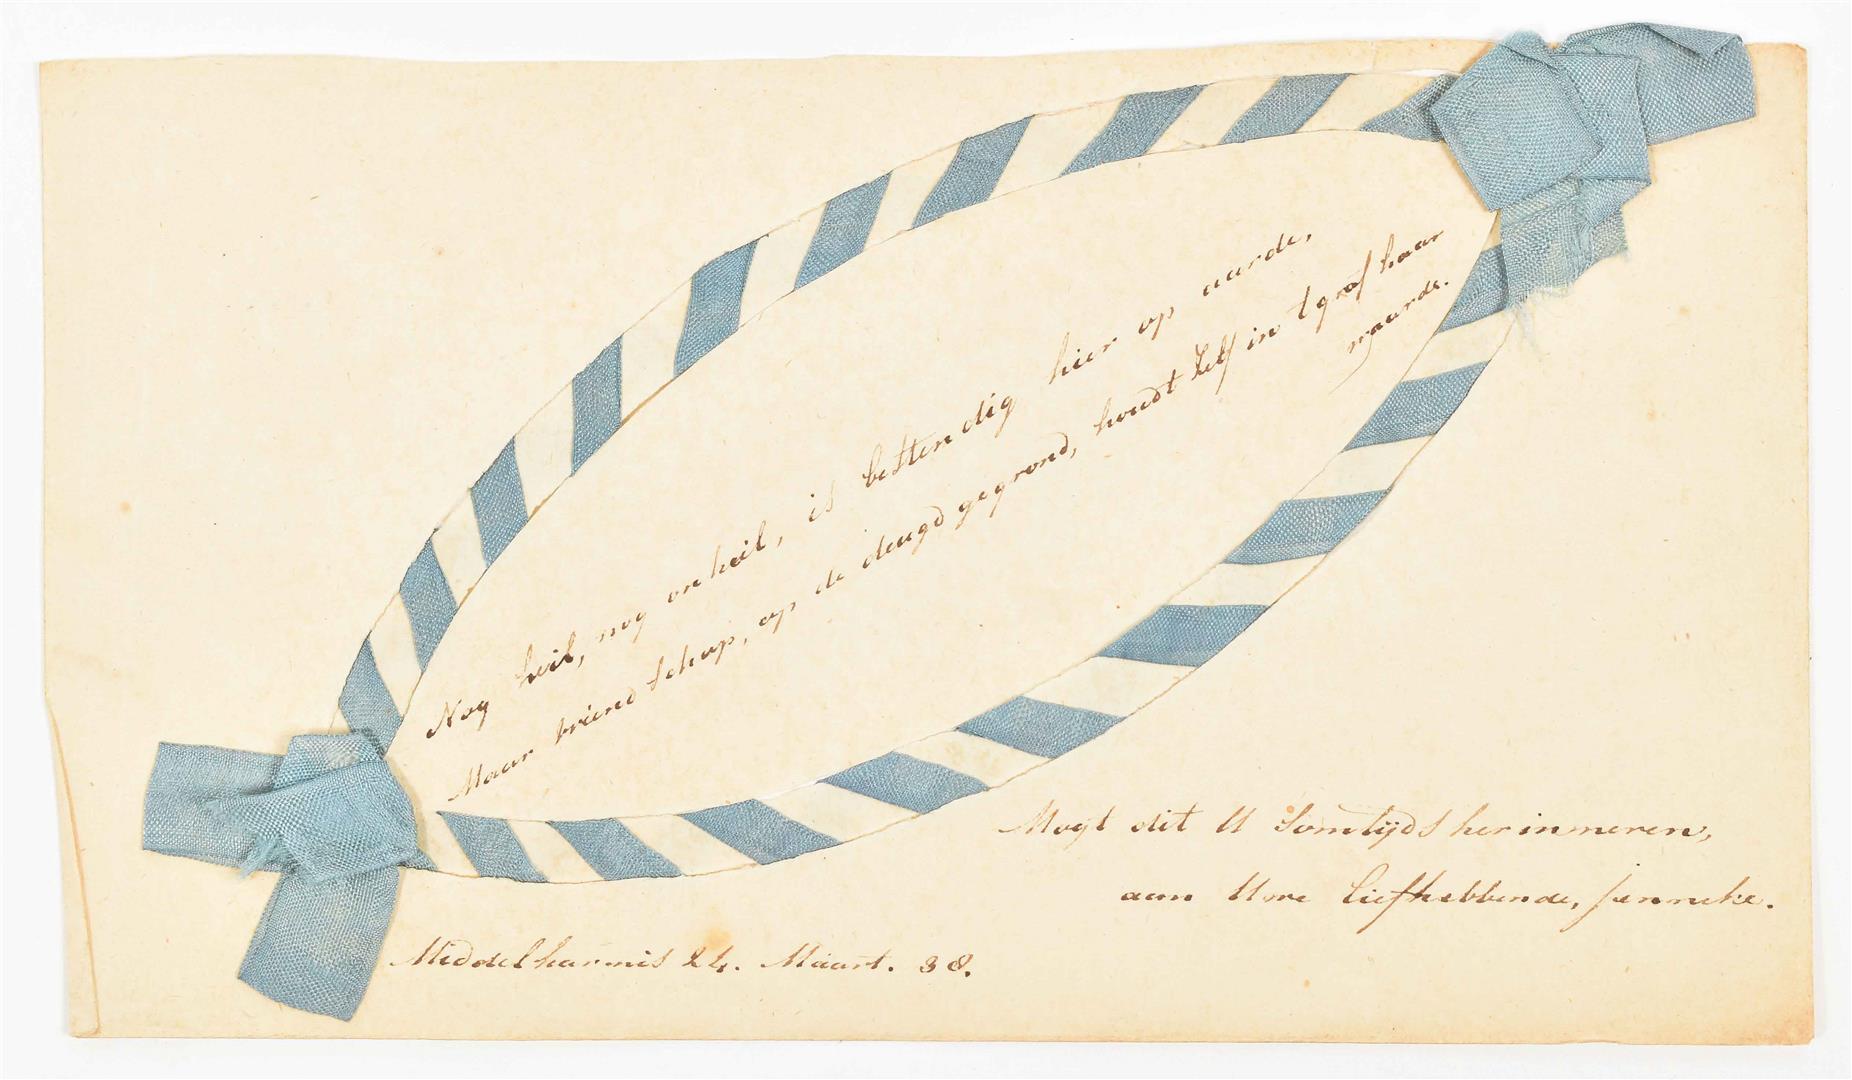 Nog heil, nog onheil, is bestendig hier op aarde,
Maar vriendschap, op de deugd gegrond, houdt zelf in t graf haar
waarde.
Mogt dit U Somtijds herinneren,
aan Uwe liefhebbende, Jenneke.
Middelharnis 24. Maart. 38.